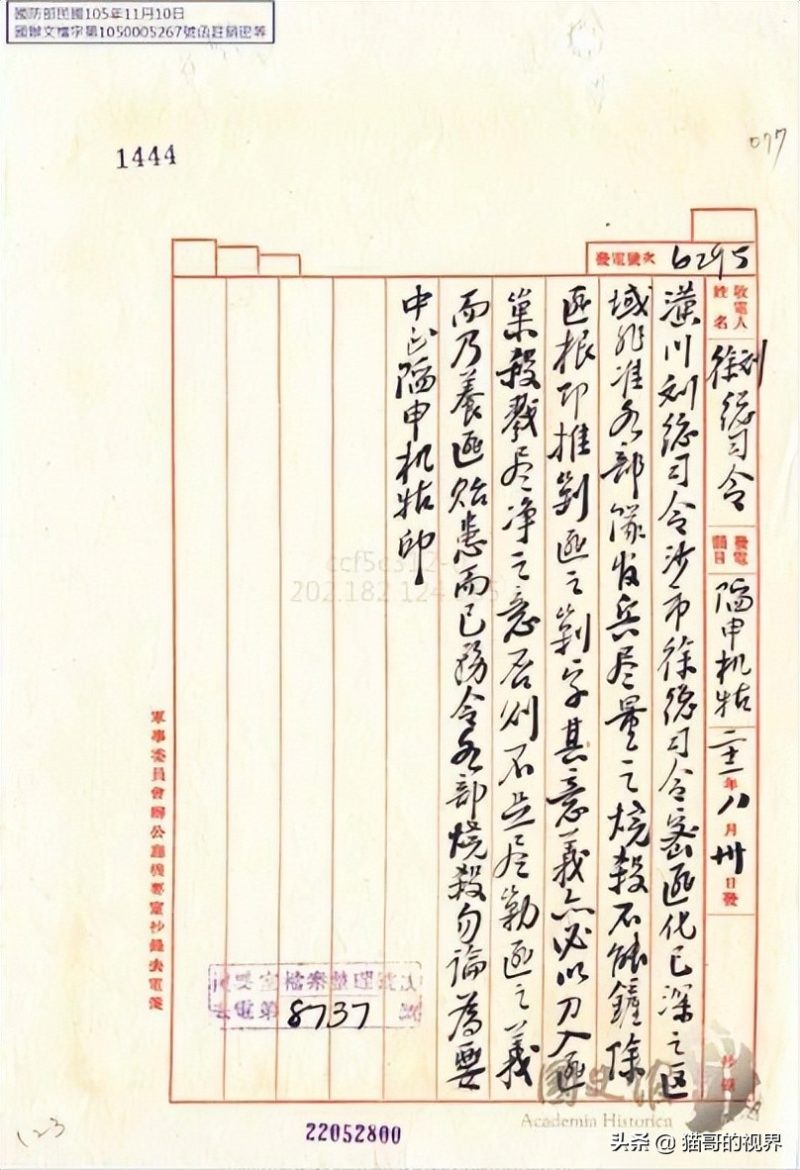 國防部民國105年11月10日
國辦文檔字第1050005267號函註銷密等
1444
077
發電號次 6295
收電人姓名 徐刘總司令 發電韻目 陷申机牯 二十一年八月卅日發
潢川刘總司令沙市徐總司令密匪化已深之區
域非准各部隊发兵尽量之燒殺不能鏟除
匪根即推剿匪之剿字其意義亦必以刀入匪
巢殺戮尽净之意否则不足尽勦匪之義
而乃養匪贻患而已務令各部燒殺勿論為要
中正陷申机牯印
軍事委員會辦公廳機要室抄錄去電箋
機要室檔案整理
去電第8737
ccf5c312-
202.182.124
國史館
Academia Historica
123
22052800
头条 @ 猫哥的视界